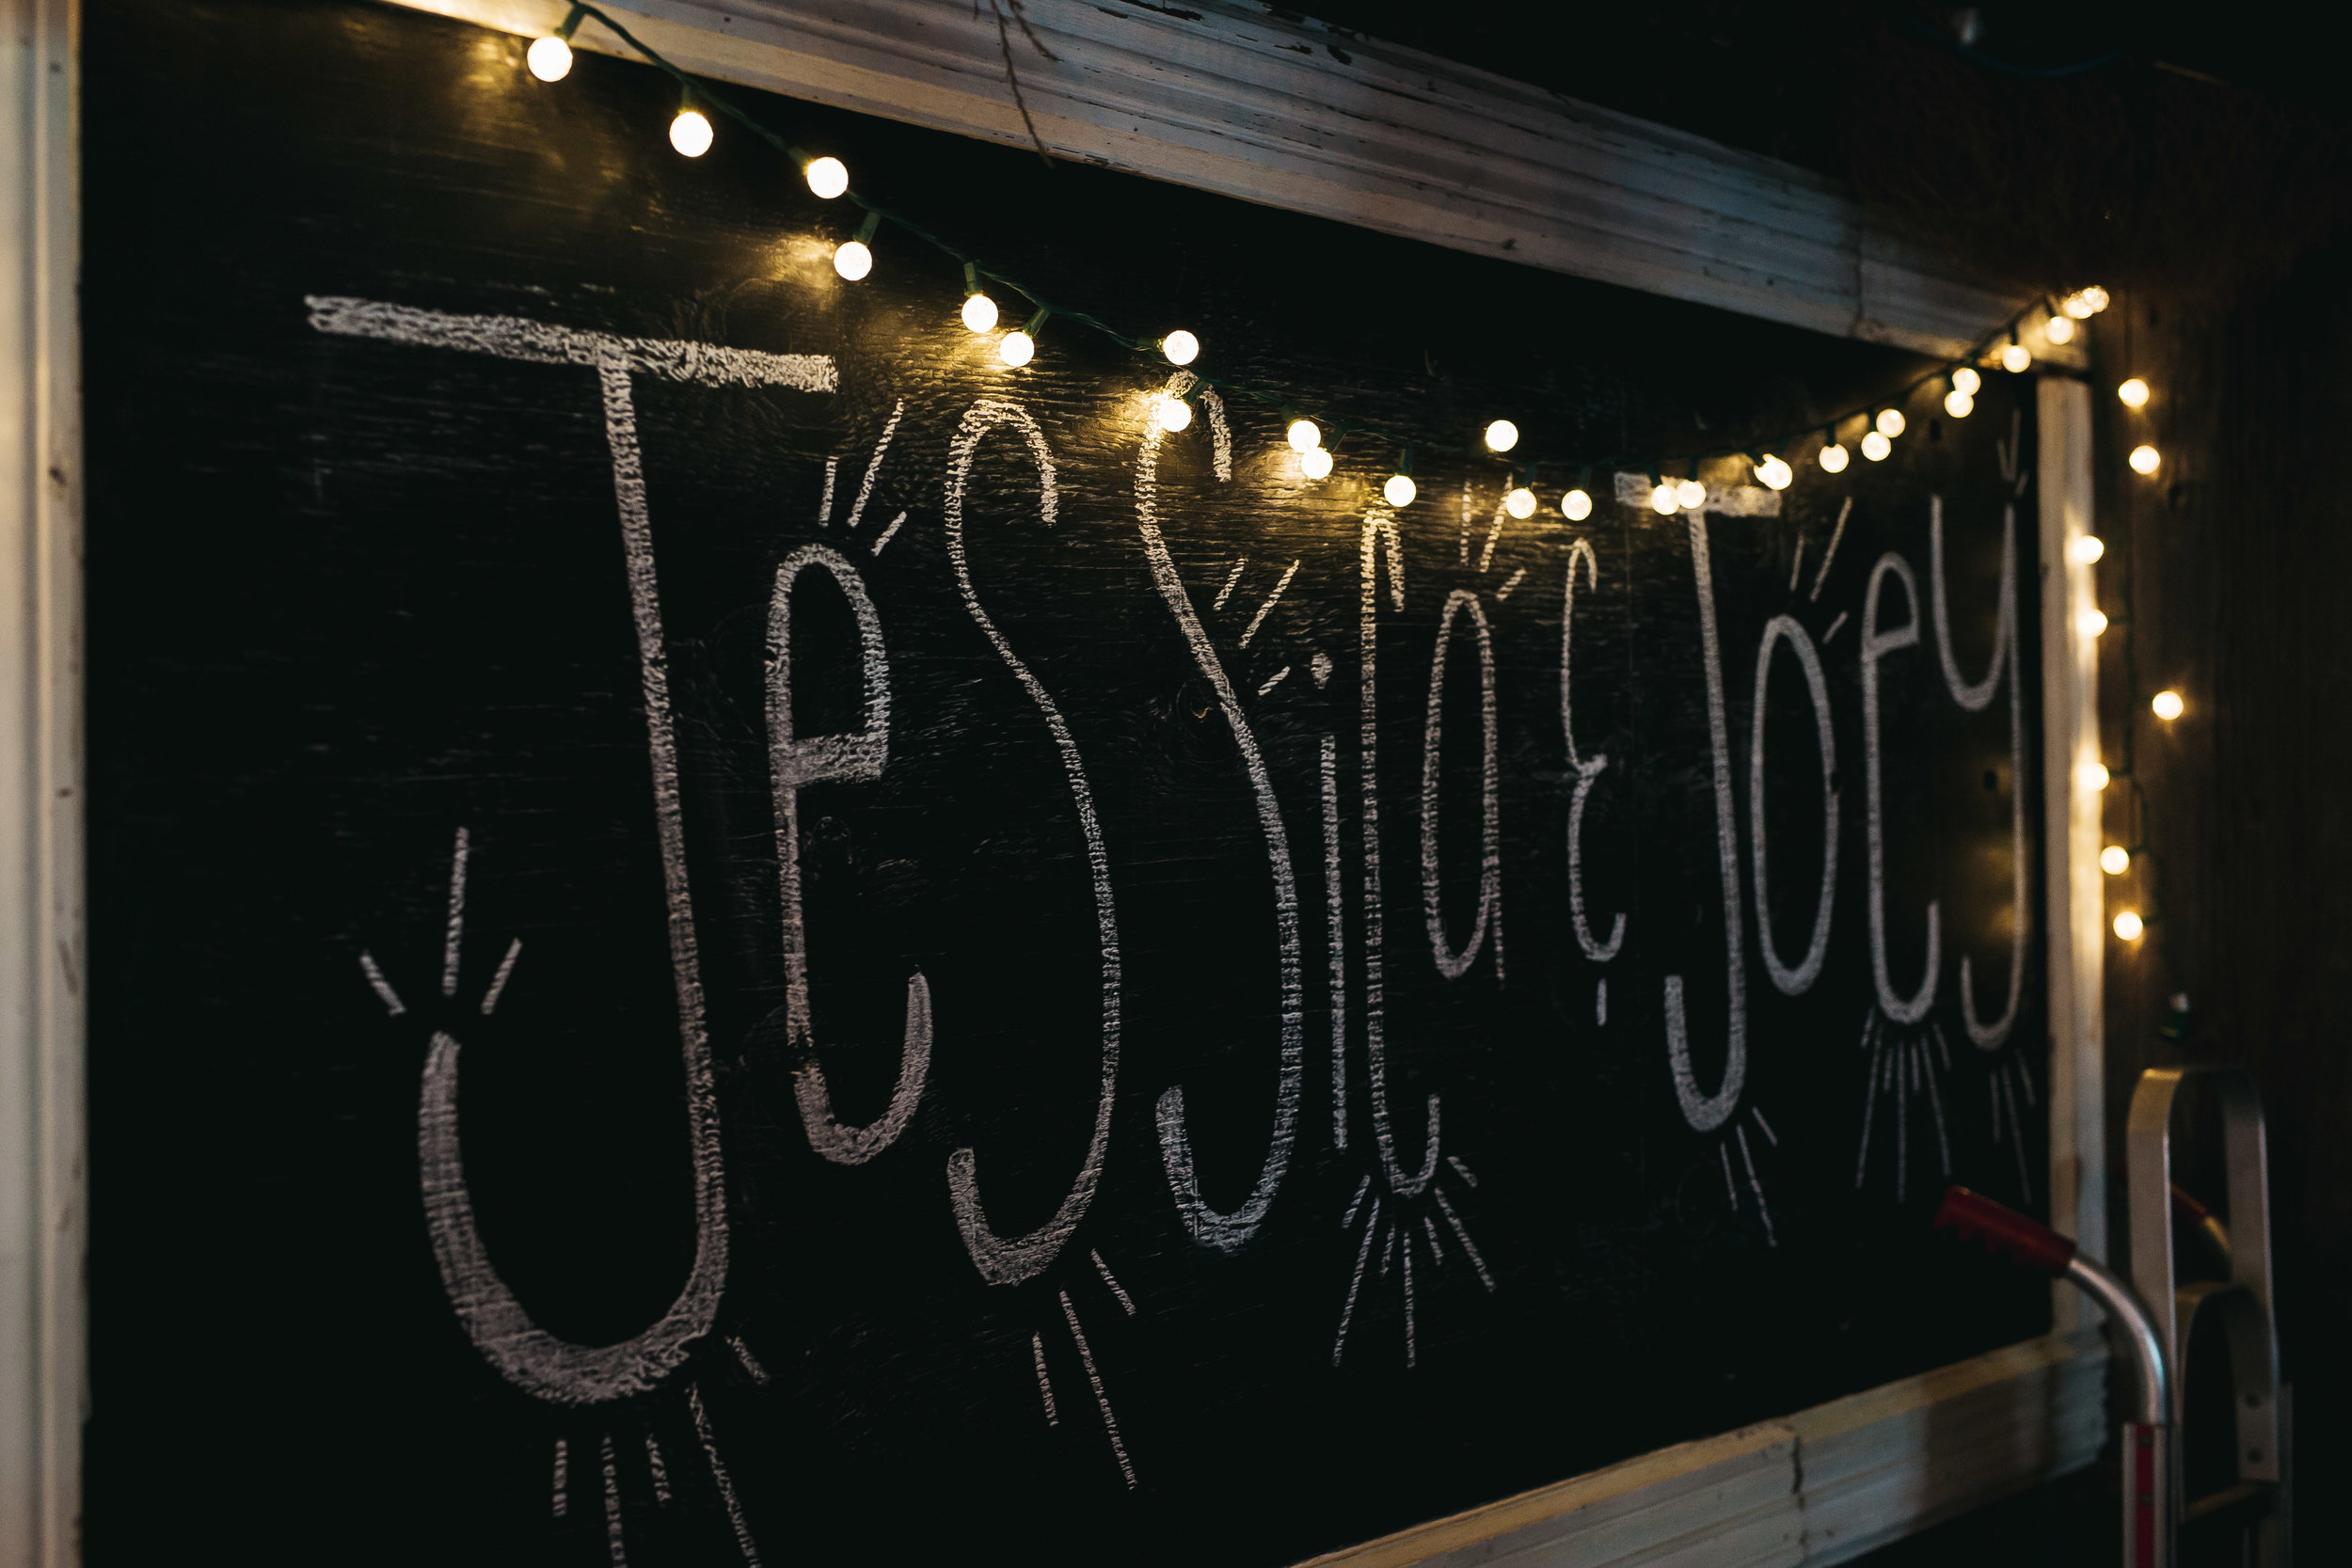 Jessica & Joey